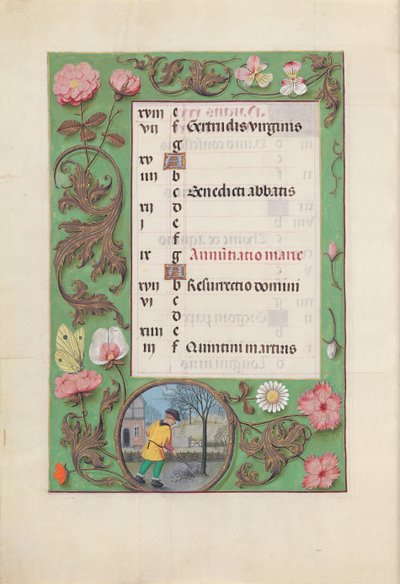 xviii e
vii f Gertrudis virginis
g
xv A
iiii b
c Benedicti abbatis
xii d
i e
f
ix g Annūtiatio marie
A
xvii b Resurrectio domini
vi c
d
xiiii e
iii f Quintini martiris